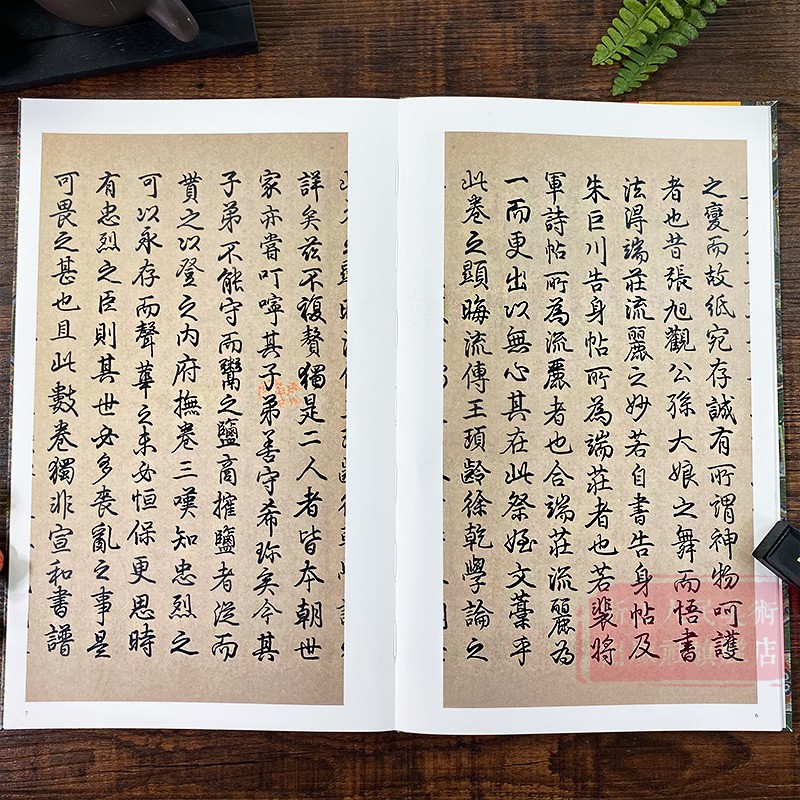 之變而故紙宛存誠有所謂神物呵護
者也昔張旭觀公孫大娘之舞而悟書
法淂端莊流麗之妙若自書告身帖及
朱巨川告身帖所為端莊者也若裴將
軍詩帖所為流麗者也合端莊流麗為
一而更出以無心其在此祭姪文藁乎
此卷之顯晦流傳王頊齡徐乾學論之
詳矣茲不複贅獨是二人者皆本朝世
家亦嘗叮嚀其子弟善守希珍矣今其
子弟不能守而鬻之鹽商搉鹽者從而
貰之以登之内府撫卷三嘆知忠烈之
可以永存而聲華之未必恒保更思時
有忠烈之臣則其世必多喪亂之事是
可畏之甚也且此數卷獨非宣和書譜
6
7